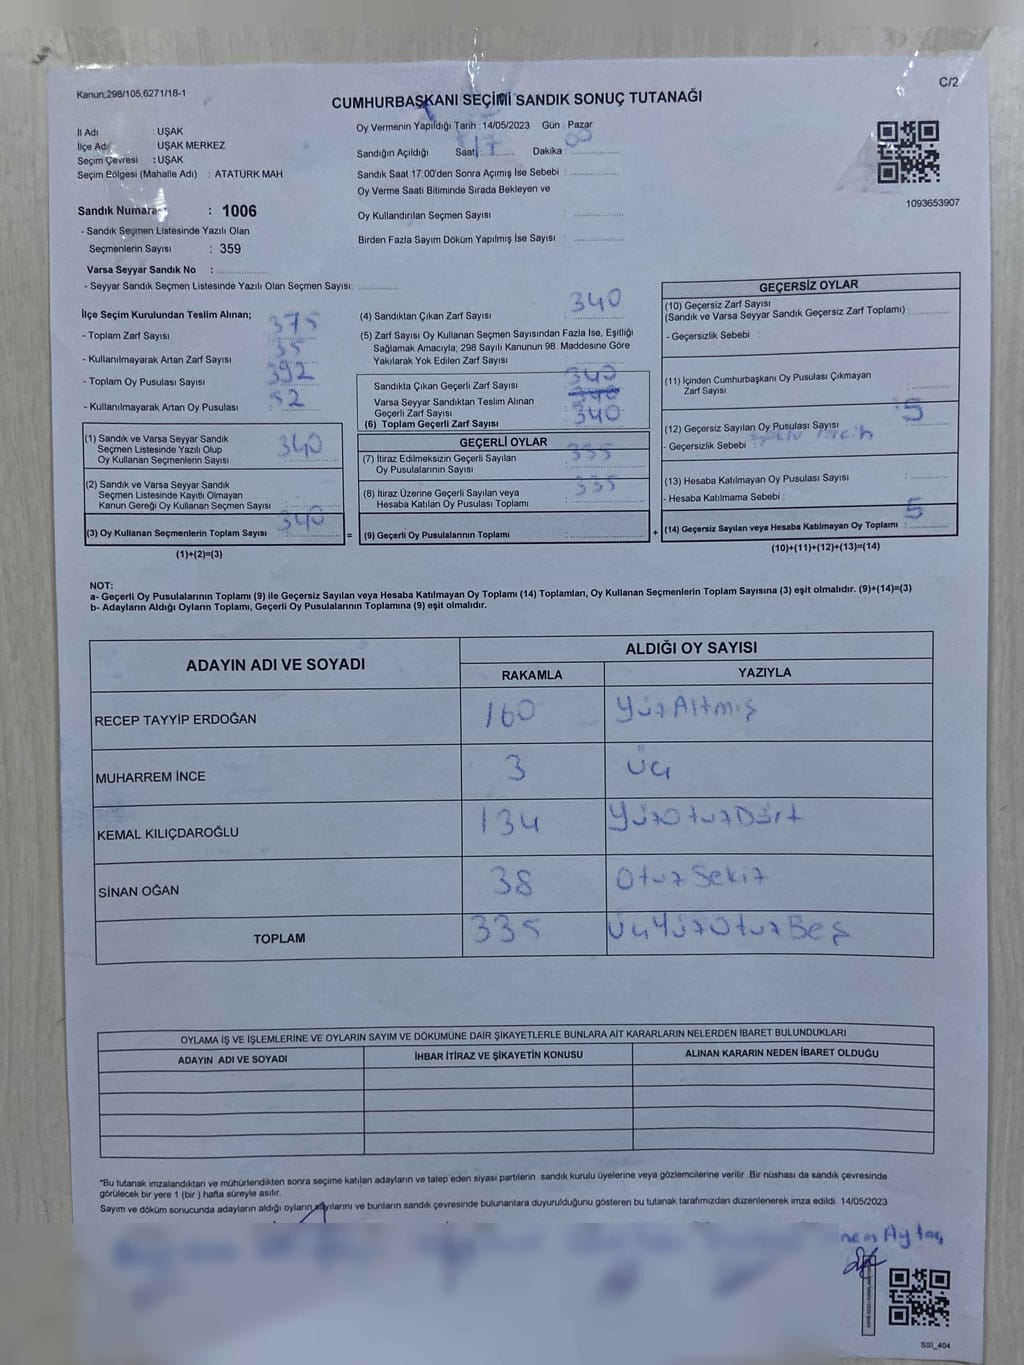 Kanun;298/105,6271/18-1
C/2
CUMHURBAŞKANI SEÇİMİ SANDIK SONUÇ TUTANAĞI
İl Adı : UŞAK
İlçe Adı : UŞAK MERKEZ
Seçim Çevresi : UŞAK
Seçim Bölgesi (Mahalle Adı) : ATATÜRK MAH
Oy Vermenin Yapıldığı Tarih : 14/05/2023 Gün : Pazar
Sandığın Açıldığı Saat : 17 Dakika :
Sandık Saat 17:00'den Sonra Açımış İse Sebebi :
Oy Verme Saati Bitiminde Sırada Bekleyen ve
Oy Kullandırılan Seçmen Sayısı :
Birden Fazla Sayım Döküm Yapılmış İse Sayısı :
1093653907
Sandık Numarası : 1006
- Sandık Seçmen Listesinde Yazılı Olan
Seçmenlerin Sayısı : 359
Varsa Seyyar Sandık No :
- Seyyar Sandık Seçmen Listesinde Yazılı Olan Seçmen Sayısı:
İlçe Seçim Kurulundan Teslim Alınan;
- Toplam Zarf Sayısı : 375
- Kullanılmayarak Artan Zarf Sayısı : 35
- Toplam Oy Pusulası Sayısı : 392
- Kullanılmayarak Artan Oy Pusulası : 52
(1) Sandık ve Varsa Seyyar Sandık
Seçmen Listesinde Yazılı Olup
Oy Kullanan Seçmenlerin Sayısı : 340
(2) Sandık ve Varsa Seyyar Sandık
Seçmen Listesinde Kayıtlı Olmayan
Kanun Gereği Oy Kullanan Seçmen Sayısı :
(3) Oy Kullanan Seçmenlerin Toplam Sayısı : 340
(1)+(2)=(3)
(4) Sandıktan Çıkan Zarf Sayısı : 340
(5) Zarf Sayısı Oy Kullanan Seçmen Sayısından Fazla İse, Eşitliği
Sağlamak Amacıyla; 298 Sayılı Kanunun 98. Maddesine Göre
Yakılarak Yok Edilen Zarf Sayısı :
Sandıkta Çıkan Geçerli Zarf Sayısı : 340
Varsa Seyyar Sandıktan Teslim Alınan
Geçerli Zarf Sayısı :
(6) Toplam Geçerli Zarf Sayısı : 340
GEÇERLİ OYLAR
(7) İtiraz Edilmeksizin Geçerli Sayılan
Oy Pusulalarının Sayısı : 335
(8) İtiraz Üzerine Geçerli Sayılan veya
Hesaba Katılan Oy Pusulası Toplamı : 335
= (9) Geçerli Oy Pusulalarının Toplamı :
GEÇERSİZ OYLAR
(10) Geçersiz Zarf Sayısı
(Sandık ve Varsa Seyyar Sandık Geçersiz Zarf Toplamı) :
- Geçersizlik Sebebi :
(11) İçinden Cumhurbaşkanı Oy Pusulası Çıkmayan
Zarf Sayısı :
(12) Geçersiz Sayılan Oy Pusulası Sayısı : 5
- Geçersizlik Sebebi :
(13) Hesaba Katılmayan Oy Pusulası Sayısı :
- Hesaba Katılmama Sebebi :
+ (14) Geçersiz Sayılan veya Hesaba Katılmayan Oy Toplamı : 5
(10)+(11)+(12)+(13)=(14)
NOT:
a- Geçerli Oy Pusulalarının Toplamı (9) ile Geçersiz Sayılan veya Hesaba Katılmayan Oy Toplamı (14) Toplamları, Oy Kullanan Seçmenlerin Toplam Sayısına (3) eşit olmalıdır. (9)+(14)=(3)
b- Adayların Aldığı Oyların Toplamı, Geçerli Oy Pusulalarının Toplamına (9) eşit olmalıdır.
ADAYIN ADI VE SOYADI
ALDIĞI OY SAYISI
RAKAMLA YAZIYLA
RECEP TAYYİP ERDOĞAN 160 YüzAltmış
MUHARREM İNCE 3 Üç
KEMAL KILIÇDAROĞLU 134 YüzOtuzDört
SİNAN OĞAN 38 OtuzSekiz
TOPLAM 335 ÜçYüzOtuzBeş
OYLAMA İŞ VE İŞLEMLERİNE VE OYLARIN SAYIM VE DÖKÜMÜNE DAİR ŞİKAYETLERLE BUNLARA AİT KARARLARIN NELERDEN İBARET BULUNDUKLARI
ADAYIN ADI VE SOYADI İHBAR İTİRAZ VE ŞİKAYETİN KONUSU ALINAN KARARIN NEDEN İBARET OLDUĞU
*Bu tutanak imzalandıktan ve mühürlendikten sonra seçime katılan adayların ve talep eden siyasi partilerin sandık kurulu üyelerine veya gözlemcilerine verilir. Bir nüshası da sandık çevresinde
görülecek bir yere 1 (bir ) hafta süreyle asılır.
Sayım ve döküm sonucunda adayların aldığı oyların sayılarını ve bunların sandık çevresinde bulunanlara duyurulduğunu gösteren bu tutanak tarafımızdan düzenlenerek imza edildi. 14/05/2023
Aytaç
SSI_404